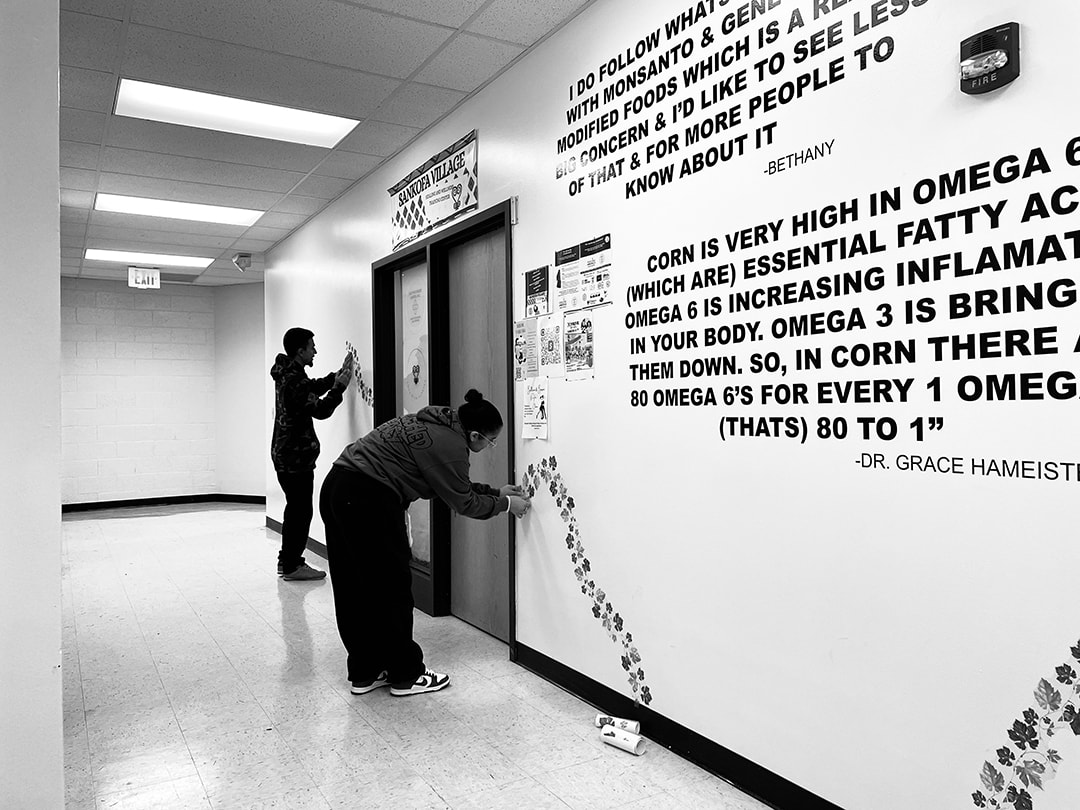 I DO FOLLOW WHAT'S
WITH MONSANTO & GENE
MODIFIED FOODS WHICH IS A REA
BIG CONCERN & I'D LIKE TO SEE LESS
OF THAT & FOR MORE PEOPLE TO
KNOW ABOUT IT
-BETHANY
FIRE
SANKOFA VILLAGE
EXIT
CORN IS VERY HIGH IN OMEGA 6
(WHICH ARE) ESSENTIAL FATTY AC
OMEGA 6 IS INCREASING INFLAMAT
IN YOUR BODY. OMEGA 3 IS BRING
THEM DOWN. SO, IN CORN THERE A
80 OMEGA 6'S FOR EVERY 1 OMEG
(THATS) 80 TO 1”
-DR. GRACE HAMEISTE